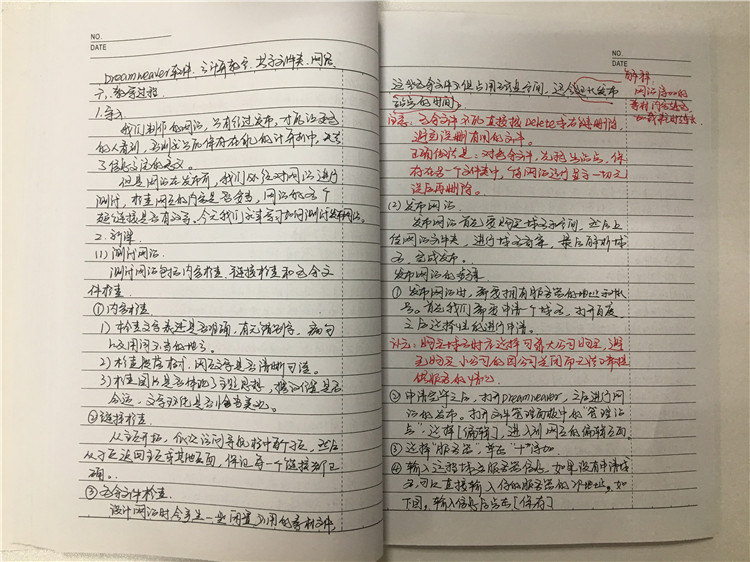 NO.
DATE
Dreamweaver软件、计算机教室、共享文件夹、网店
六、教学过程
1.导入
我们制作的网站,只有经过发布,才能让更多
的人看到,否则只是保存在自己的计算机中,
了信息交流的意义。
但是网站在发布前,我们必须对网站进行
测试,检查网页的内容是否妥当,网站的各个
超链接是否有效等,今天我们就来学习如何测试和发布网站。
2.新课
(1)测试网站
测试网站包括内容检查、链接检查和冗余文
件检查。
①内容检查
1)检查文字表述是否明确,有无错别字、病句
以及用词不当的地方。
2)检查屏幕 ,网页文字是否清晰可读。
3)检查图片是否体现了主题思想,摆放位置是否
合适,文字 是否整齐美观。
②链接检查
从主页开始,依次访问导航栏中每个页,然后
从子页返回主页或其他页面,保证每一个链接都正
确。
③冗余文件检查
设计网站时会产生一些闲置、不用的素材文件,
NO.
DATE
这些冗余文件不但占用磁盘空间,还会延长发布
站点的时间。
解释,
网站添加的
素材内容越多
加载数时越长
注意:冗余文件不可直接按Delete去右键删除
避免误删有用的文件。
正确做法是:对冗余文件,先移出站点,保
存在另一个文件夹中,待网站运行显示一切正
常后再删除。
(2)发布网站
发布网站首先要购买域名和空间,然后上
传网站文件夹,进行域名备案,最后解析域
名,完成发布。
发布网站的步骤
①发布网站时,需要拥有服务器的地址和账
号。首先我们需要申请一个域名,打开百度,
之后选择 进行申请。
注意:购买域名时应选择可靠大公司购买,避
免购买小公司的因公司关闭而无法正常提
供服务的情况
②申请完毕之后,打开Dreamweaver,之后进行网
站的发布。打开文件管理面板中的“管理站
点”,选择[编辑],进入到网页的编辑页面。
③选择“服务器”,单击“+”添加
④输入这个域名服务器信息,如果没有申请域
名,可以直接输入你的服务器的IP地址。如
下图,输入信息后点击[保存]